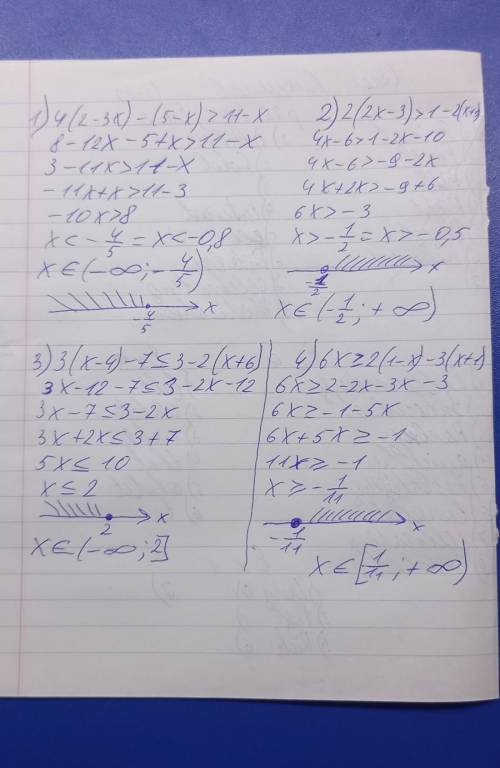 1) 4(2-3x)-(5-x)>11-x
8-12x-5+x>11-x
3-11x>11-x
-11x+x>11-3
-10x>8
x<-4/5=x<-0,8
x∈(-∞;-4/5)
-4/5 x
2) 2(2x-3)>1-2(x+5)
4x-6>1-2x-10
4x-6>-9-2x
4x+2x>-9+6
6x>-3
x>-1/2=x>-0,5
-1/2 x
x∈(-1/2;+∞)
3) 3(x-4)-7≤3-2(x+6)
3x-12-7≤3-2x-12
3x-7≤3-2x
3x+2x≤3+7
5x≤10
x≤2
2 x
x∈(-∞;2]
4) 6x≥2(1-x)-3(x+1)
6x≥2-2x-3x-3
6x≥-1-5x
6x+5x≥-1
11x≥-1
x≥-1/11
-1/11 x
x∈[1/11;+∞)